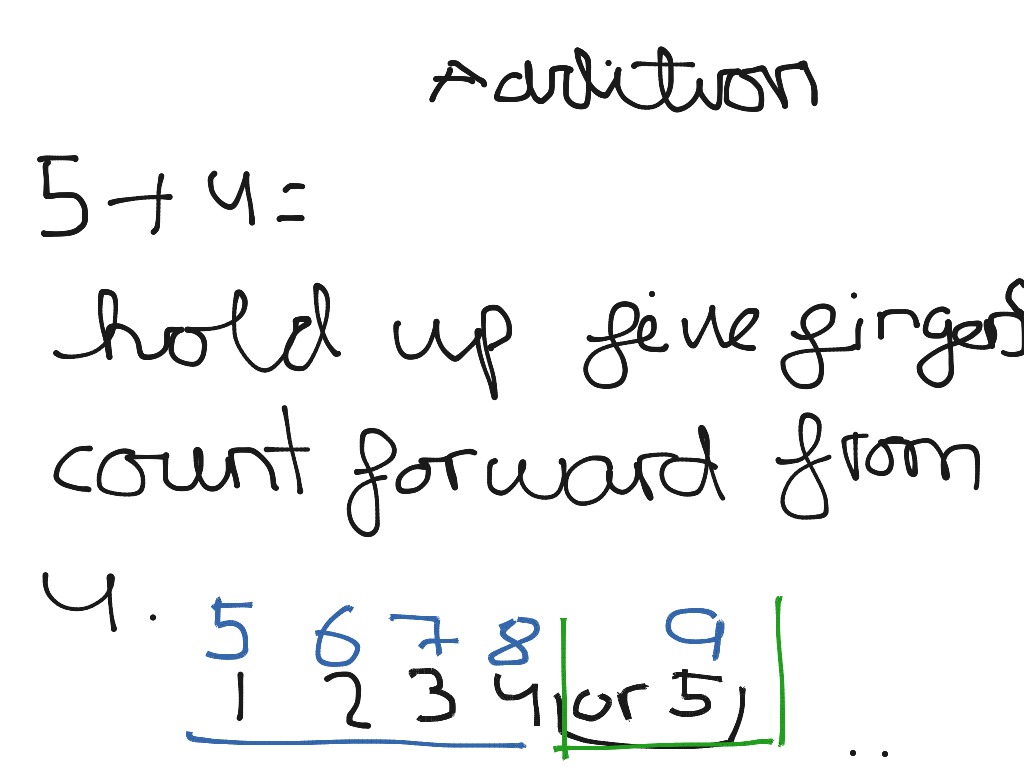 Addition
5+4=
hold up five fingers
count forward from
4.
5 6 7 8 9
1 2 3 4, or 5,